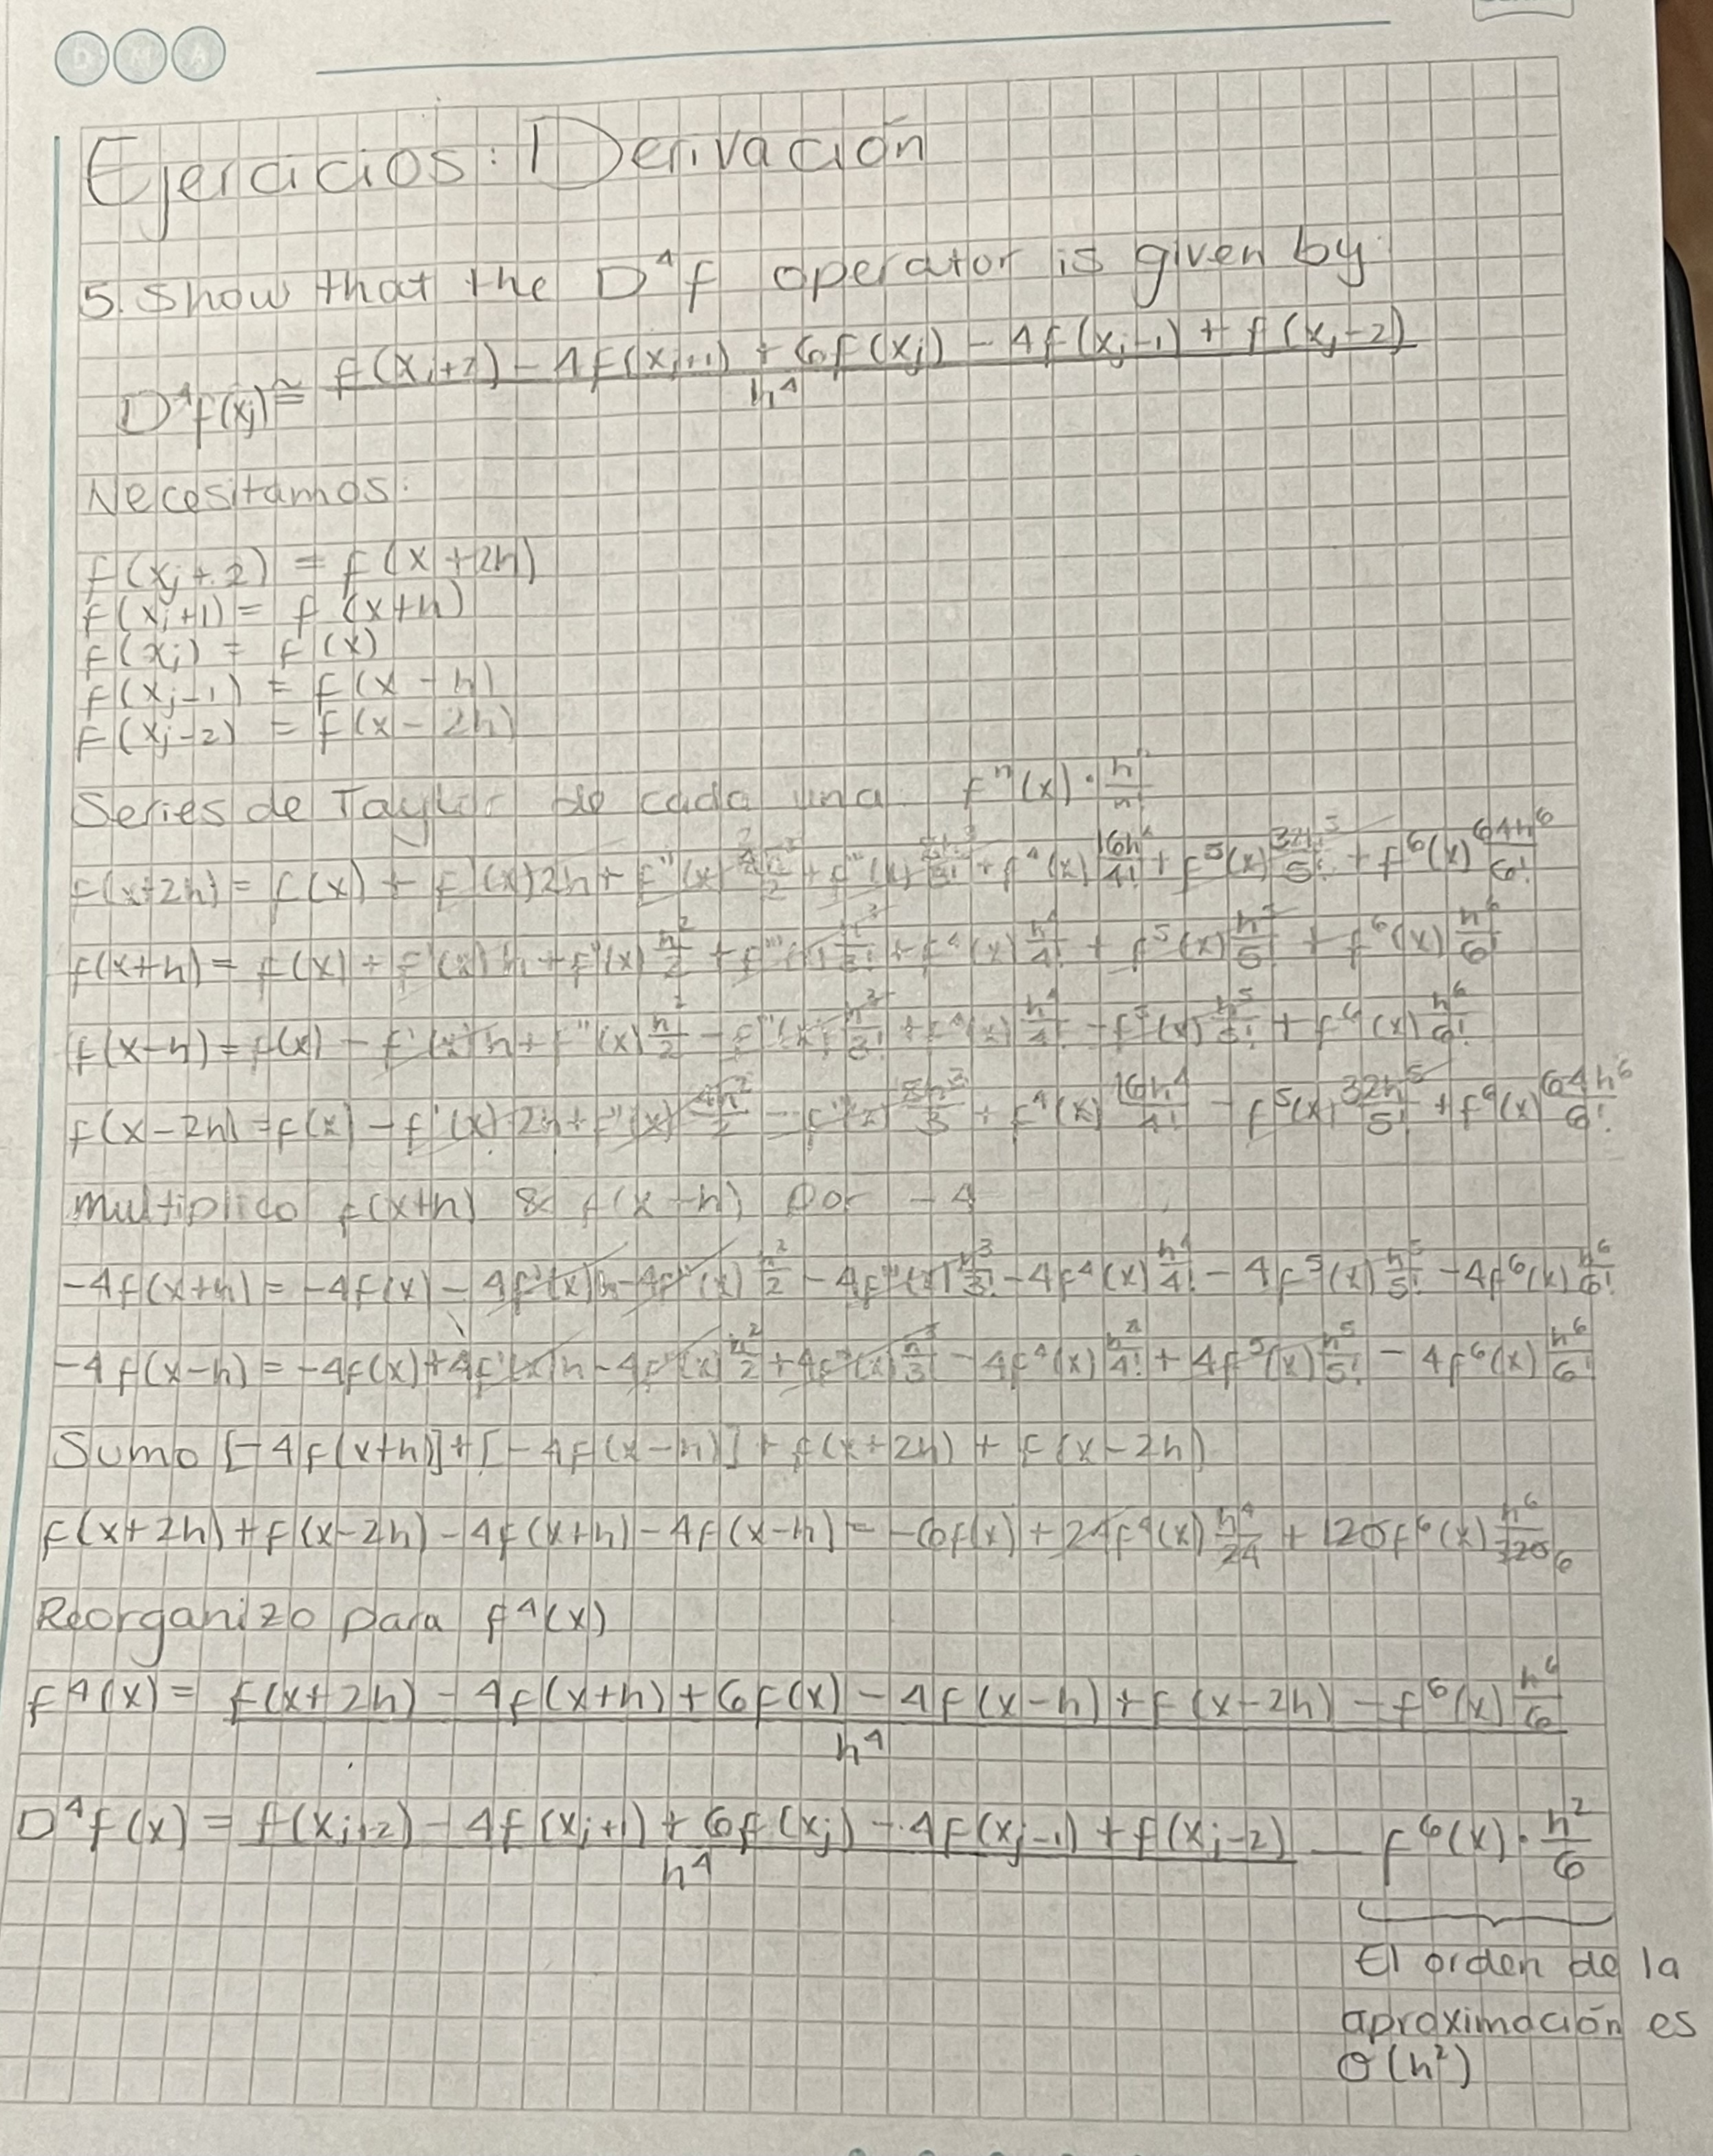 D M A
Ejercicios: Derivación
5. Show that the D⁴f operator is given by:
D⁴f(xj) ≅ f(xj+2) - 4f(xj+1) + 6f(xj) - 4f(xj-1) + f(xj-2) / h⁴
Necesitamos:
f(xj+2) = f(x+2h)
f(xj+1) = f(x+h)
f(xj) = f(x)
f(xj-1) = f(x-h)
f(xj-2) = f(x-2h)
Series de Taylor de cada una. fⁿ(x) · hⁿ/n!
f(x+2h) = f(x) + f'(x)2h + f''(x) 4h²/2 + f'''(x) 8h³/3! + f⁴(x) 16h⁴/4! + f⁵(x) 32h⁵/5! + f⁶(x) 64h⁶/6!
f(x+h) = f(x) + f'(x)h + f''(x) h²/2 + f'''(x) h³/3! + f⁴(x) h⁴/4! + f⁵(x) h⁵/5! + f⁶(x) h⁶/6!
f(x-h) = f(x) - f'(x)h + f''(x) h²/2 - f'''(x) h³/3! + f⁴(x) h⁴/4! - f⁵(x) h⁵/5! + f⁶(x) h⁶/6!
f(x-2h) = f(x) - f'(x)2h + f''(x) 4h²/2 - f'''(x) 8h³/3 + f⁴(x) 16h⁴/4! - f⁵(x) 32h⁵/5! + f⁶(x) 64h⁶/6!
multiplico f(x+h) & f(x-h) por -4
-4f(x+h) = -4f(x) - 4f'(x)h - 4f''(x) h²/2 - 4f'''(x) h³/3! - 4f⁴(x) h⁴/4! - 4f⁵(x) h⁵/5! - 4f⁶(x) h⁶/6!
-4f(x-h) = -4f(x) + 4f'(x)h - 4f''(x) h²/2 + 4f³(x) h³/3! - 4f⁴(x) h⁴/4! + 4f⁵(x) h⁵/5! - 4f⁶(x) h⁶/6!
Sumo [-4f(x+h)] + [-4f(x-h)] + f(x+2h) + f(x-2h)
f(x+2h) + f(x-2h) - 4f(x+h) - 4f(x-h) = -6f(x) + 24f⁴(x) h⁴/24 + 120f⁶(x) h⁶/720 6
Reorganizo para f⁴(x)
f⁴(x) = f(x+2h) - 4f(x+h) + 6f(x) - 4f(x-h) + f(x-2h) - f⁶(x) h⁶/6 / h⁴
D⁴f(x) = f(xj+2) - 4f(xj+1) + 6f(xj) - 4f(xj-1) + f(xj-2) / h⁴ - f⁶(x) · h²/6
El orden de la
aproximación es
O(h²)